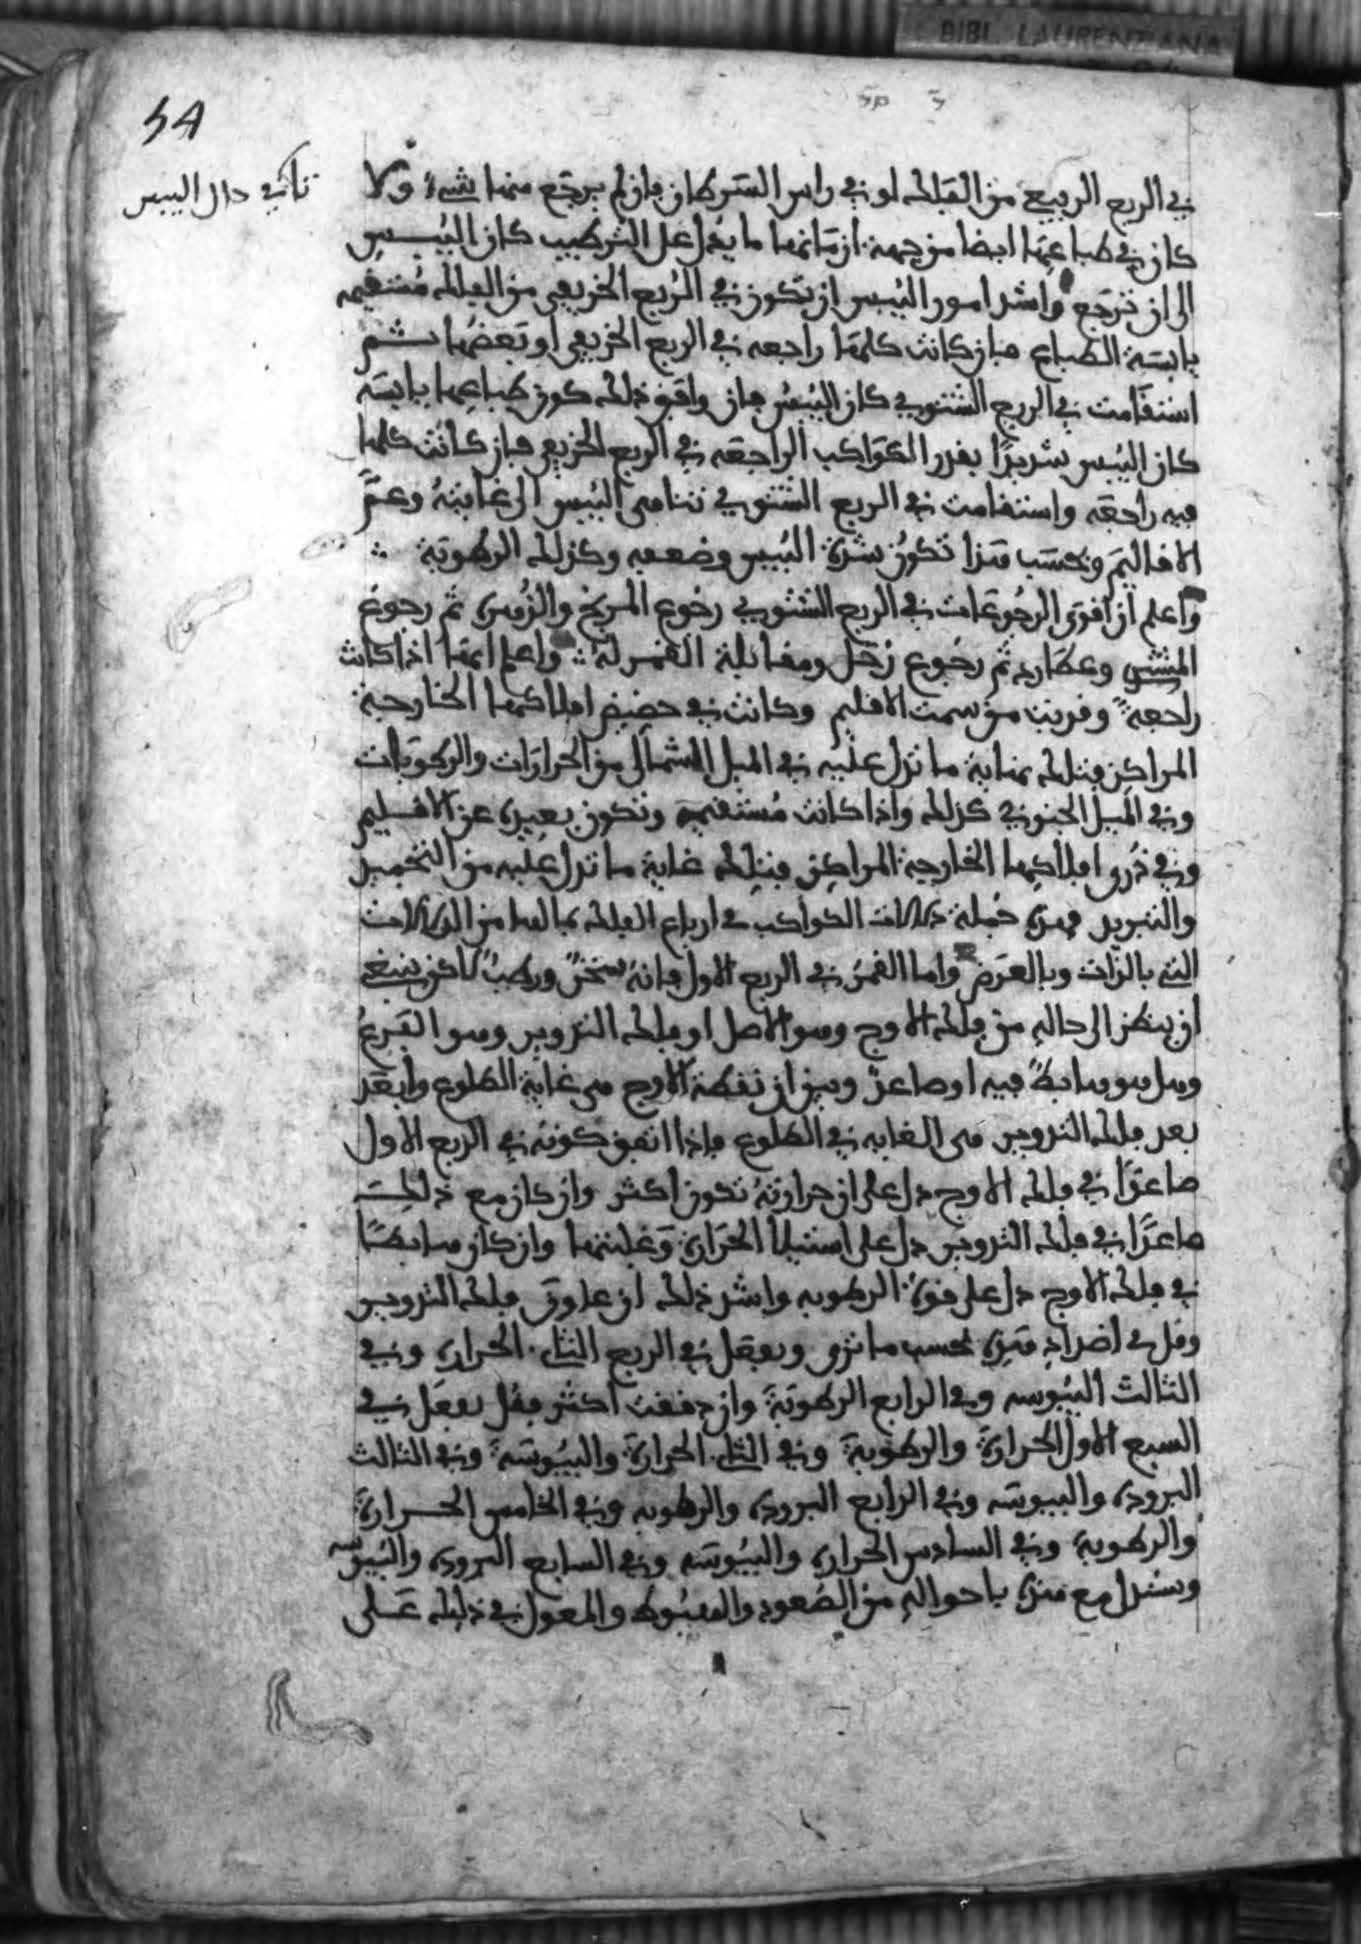 BIBL. LAURENZIANA
54
في الربع الربيع من الفلك او في راس السرطان فان لم يرجع منها شيء ولا
تاثير دال اليبس
كان في طباعها ايضا من جهة ازمانها ما يدل على الترطيب كان اليبس
الى ان ترجع واشد امور اليبس ان تكون في الربع الخريفي من الفلك مستقيمه
يابسة الطباع فان كانت كلها راجعه في الربع الخريفي او بعضها ثم
استقامت في الربع الشتوي كان اليبس فان وافق ذلك كون طباعها يابسة
كان اليبس شديدا بقدر الكواكب الراجعه في الربع الخريفي فان كانت كلها
فيه راجعه واستقامت في الربع الشتوي تناهى اليبس الى غايته وعم
الاقاليم وبحسب هذا تكون شدة اليبس وضعفه وكذلك الرطوبة
واعلم ان اقوى الرجوعات في الربع الشتوي رجوع المريخ والزهرة ثم رجوع
المشتري وعطارد ثم رجوع زحل ومقابلة الشمس له واعلم انها اذا كانت
راجعة وقربت من سمت الاقليم وكانت في حضيض افلاكها الخارجة
المراكز فتلك نهاية ما تدل عليه في الميل الشمالي من الحرارات والرطوبات
وفي الميل الجنوبي كذلك واذا كانت مستقيمة وتكون بعيدة عن الاقليم
وفي ذرو افلاكها الخارجة المراكز فتلك غاية ما تدل عليه من التخمير
والتبريد فهذه جملة دلالات الكواكب في ارباع الفلك بما لها من الدلالات
التي بالذات وبالعرض واما القمر في الربع الاول فانه يسخن ويرطب لاكن ينبغي
ان ينظر الى حاله من فلك الاوج وهو الاصل او فلك التدوير وهو الفرع
وهل هو هابط فيه او صاعد وبين ان نقطة الاوج هي غاية الطلوع وابعد
بعد فلك التدوير هي الغايه في الطلوع فاذا اتفق كونه في الربع الاول
صاعدا في فلك الاوج دل على ان حرارته تكون اكثر وان كان مع ذلك
صاعدا في فلك التدوير دل على استيلا الحرارة وغلبتها وان كان هابطا
في فلك الاوج دل على قوة الرطوبه واشد ذلك ان عاوق فلك التدوير
وقل في اضداد هذه بحسب ما ترى ويفعل في الربع الثاني الحرارة وفي
الثالث اليبوسه وفي الرابع الرطوبة وان دققت اكثر فقل يفعل في
السبع الاول الحرارة والرطوبة وفي الثاني الحرارة واليبوسة وفي الثالث
البرودة واليبوسه وفي الرابع البرودة والرطوبه وفي الخامس الحرارة
والرطوبة وفي السادس الحرارة واليبوسه وفي السابع البرودة واليبوسه
ويستدل مع هذه باحواله من الصعود والهبوط والمعول في ذلك على